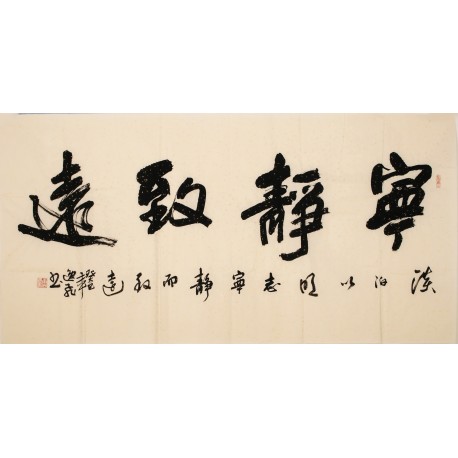 寧靜致遠
淡泊以明志寧靜而致遠
書